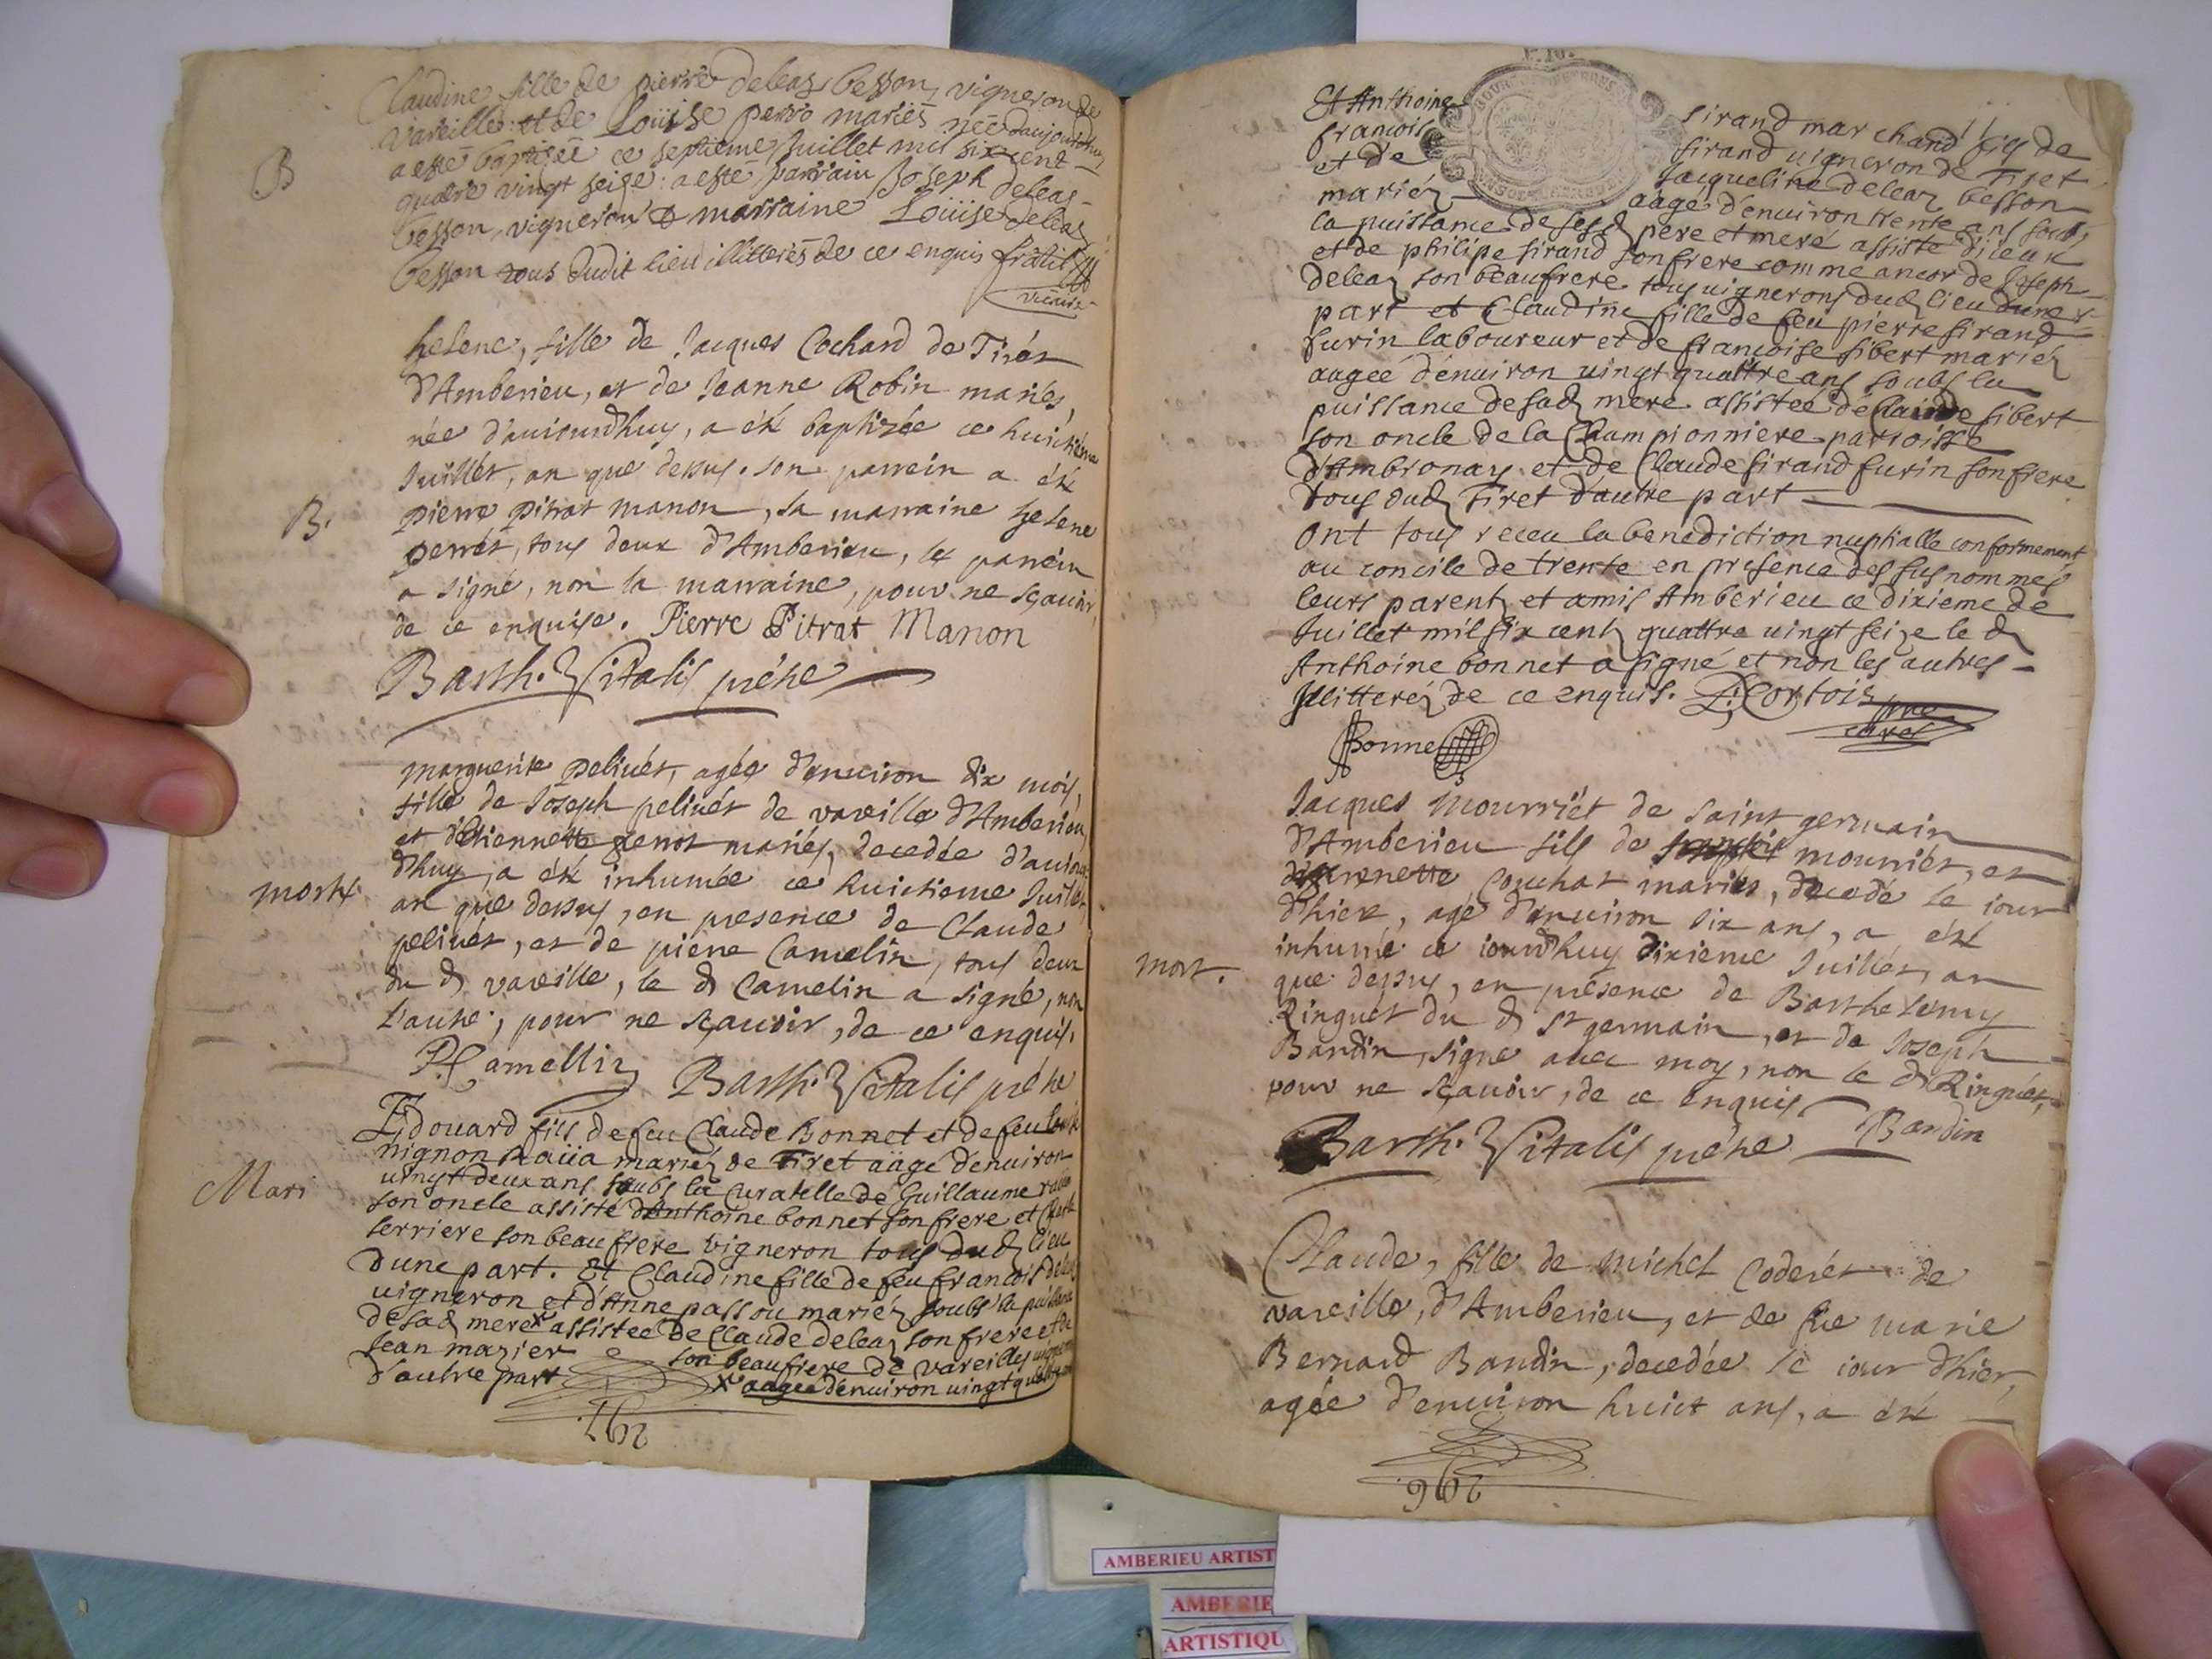 Claudine fille de pierre deleaz besson, vigneron de
vareille: et de Loüise perro mariés née daujourdhuy
a esté baptisée ce septieme Juillet mil six cent
quatre vingt seise: a esté parrain Joseph deleaz
B
besson, vigneron & marraine Loüise deleaz
besson tous dudit lieu illitteres de ce enquis
vicaire
helene, fille de Jacques Cochard de Tirét
d'Amberieu, et de Jeanne Robin mariés,
née d'auiourdhuy, a été baptizée ce huictiéme
Juillét, an que dessus. son parrein a été
B.
pierre pitrat manon, sa marraine helene
perrét, tous deux d'Amberieu, le parrein
a signé, non la marraine, pour ne sçauoir,
de ce enquise. Pierre Pitrat Manon
Barth. Vitalis prêtre
marguerite peliuét, agée d'enuiron dix mois,
fille de Joseph peliuét de vareille d'Amberieu,
et d'étiennette genot mariés, decedée d'auiour
dhuy, a été inhumée ce huictieme Juillét
morte.
an que dessus, en presence de Claude
peliuét, et de pierre Camelin, tous deux
du d vareille, le d Camelin a signé, non
l'autre, pour ne sçauoir, de ce enquis.
P. Camellin Barth. Vitalis prêtre
Edouard fils de feu Claude Bonnet et de feu
nignon Raüa mariez de Tiret aagé denuiron
Mari
uingt deux ans soubs la curatelle de Guillaume
son oncle assisté danthoine bonnet son frere et
ferriere son beau frere vigneron tous dud lieu
dune part. Et Claudine fille de feu francois
uigneron et d'Anne passou mariez soubs la puissance
de sad mere x assistee de Claude deleaz son frere et de
Jean mazier son beaufrere de vareilles
d'autre part x aagee denuiron uingt quattre
297
Et Anthoine sirand marchand fils de
francois sirand uigneron de Tiret
et de Jacqueline deleaz besson
mariéz aagé d'enuiron trente ans soubs
la puissance de sesd pere et meré assisté diceux
et de philipe sirand son frere comme ancor de Joseph
deleaz son beaufrere tous uignerons dud lieu dune
part et Claudine fille de feu pierre sirand
furin laboureur et de francoise sibert mariéz
aagée d'enuiron uingt quattre ans soubs la
puissance de sad mere assistée de Claude sibert
son oncle de la Championniere parroisse
d'Ambronay et de Claude sirand furin son frere
tous dud Tiret d'autre part
ont tous receu la benediction nuptialle conformement
au concile de trente en presence des susnommes
leurs parents et amis Amberieu ce dixieme de
Juillet mil six cents quattre uingt seize le d
Anthoine bonnet a signé et non les autres
Illitteréz de ce enquis. Cortois
curé
Bonnet
Jacques mourriét de saint germain
d'Amberieu fils de mourriét, et
Couchat mariés, decedé le iour
d'hier, agé d'enuiron six ans, a été
inhumé ce iourdhuy dixieme Juillét, an
mort.
que dessus, en présence de Barthelemy
Ringuét du d st germain, et de Joseph
Bandin, signé auec moy, non le d Ringuét,
pour ne sçauoir, de ce enquis. Bandin
Barth. Vitalis prêtre
Claude, fille de michel Coderét de
vareille, d'Amberieu, et de fue marie
Bernard Bandin, decedée le iour d'hier,
agée d'enuiron huict ans, a été
296
AMBERIEU ARTIST
AMBERIE
ARTISTIQU